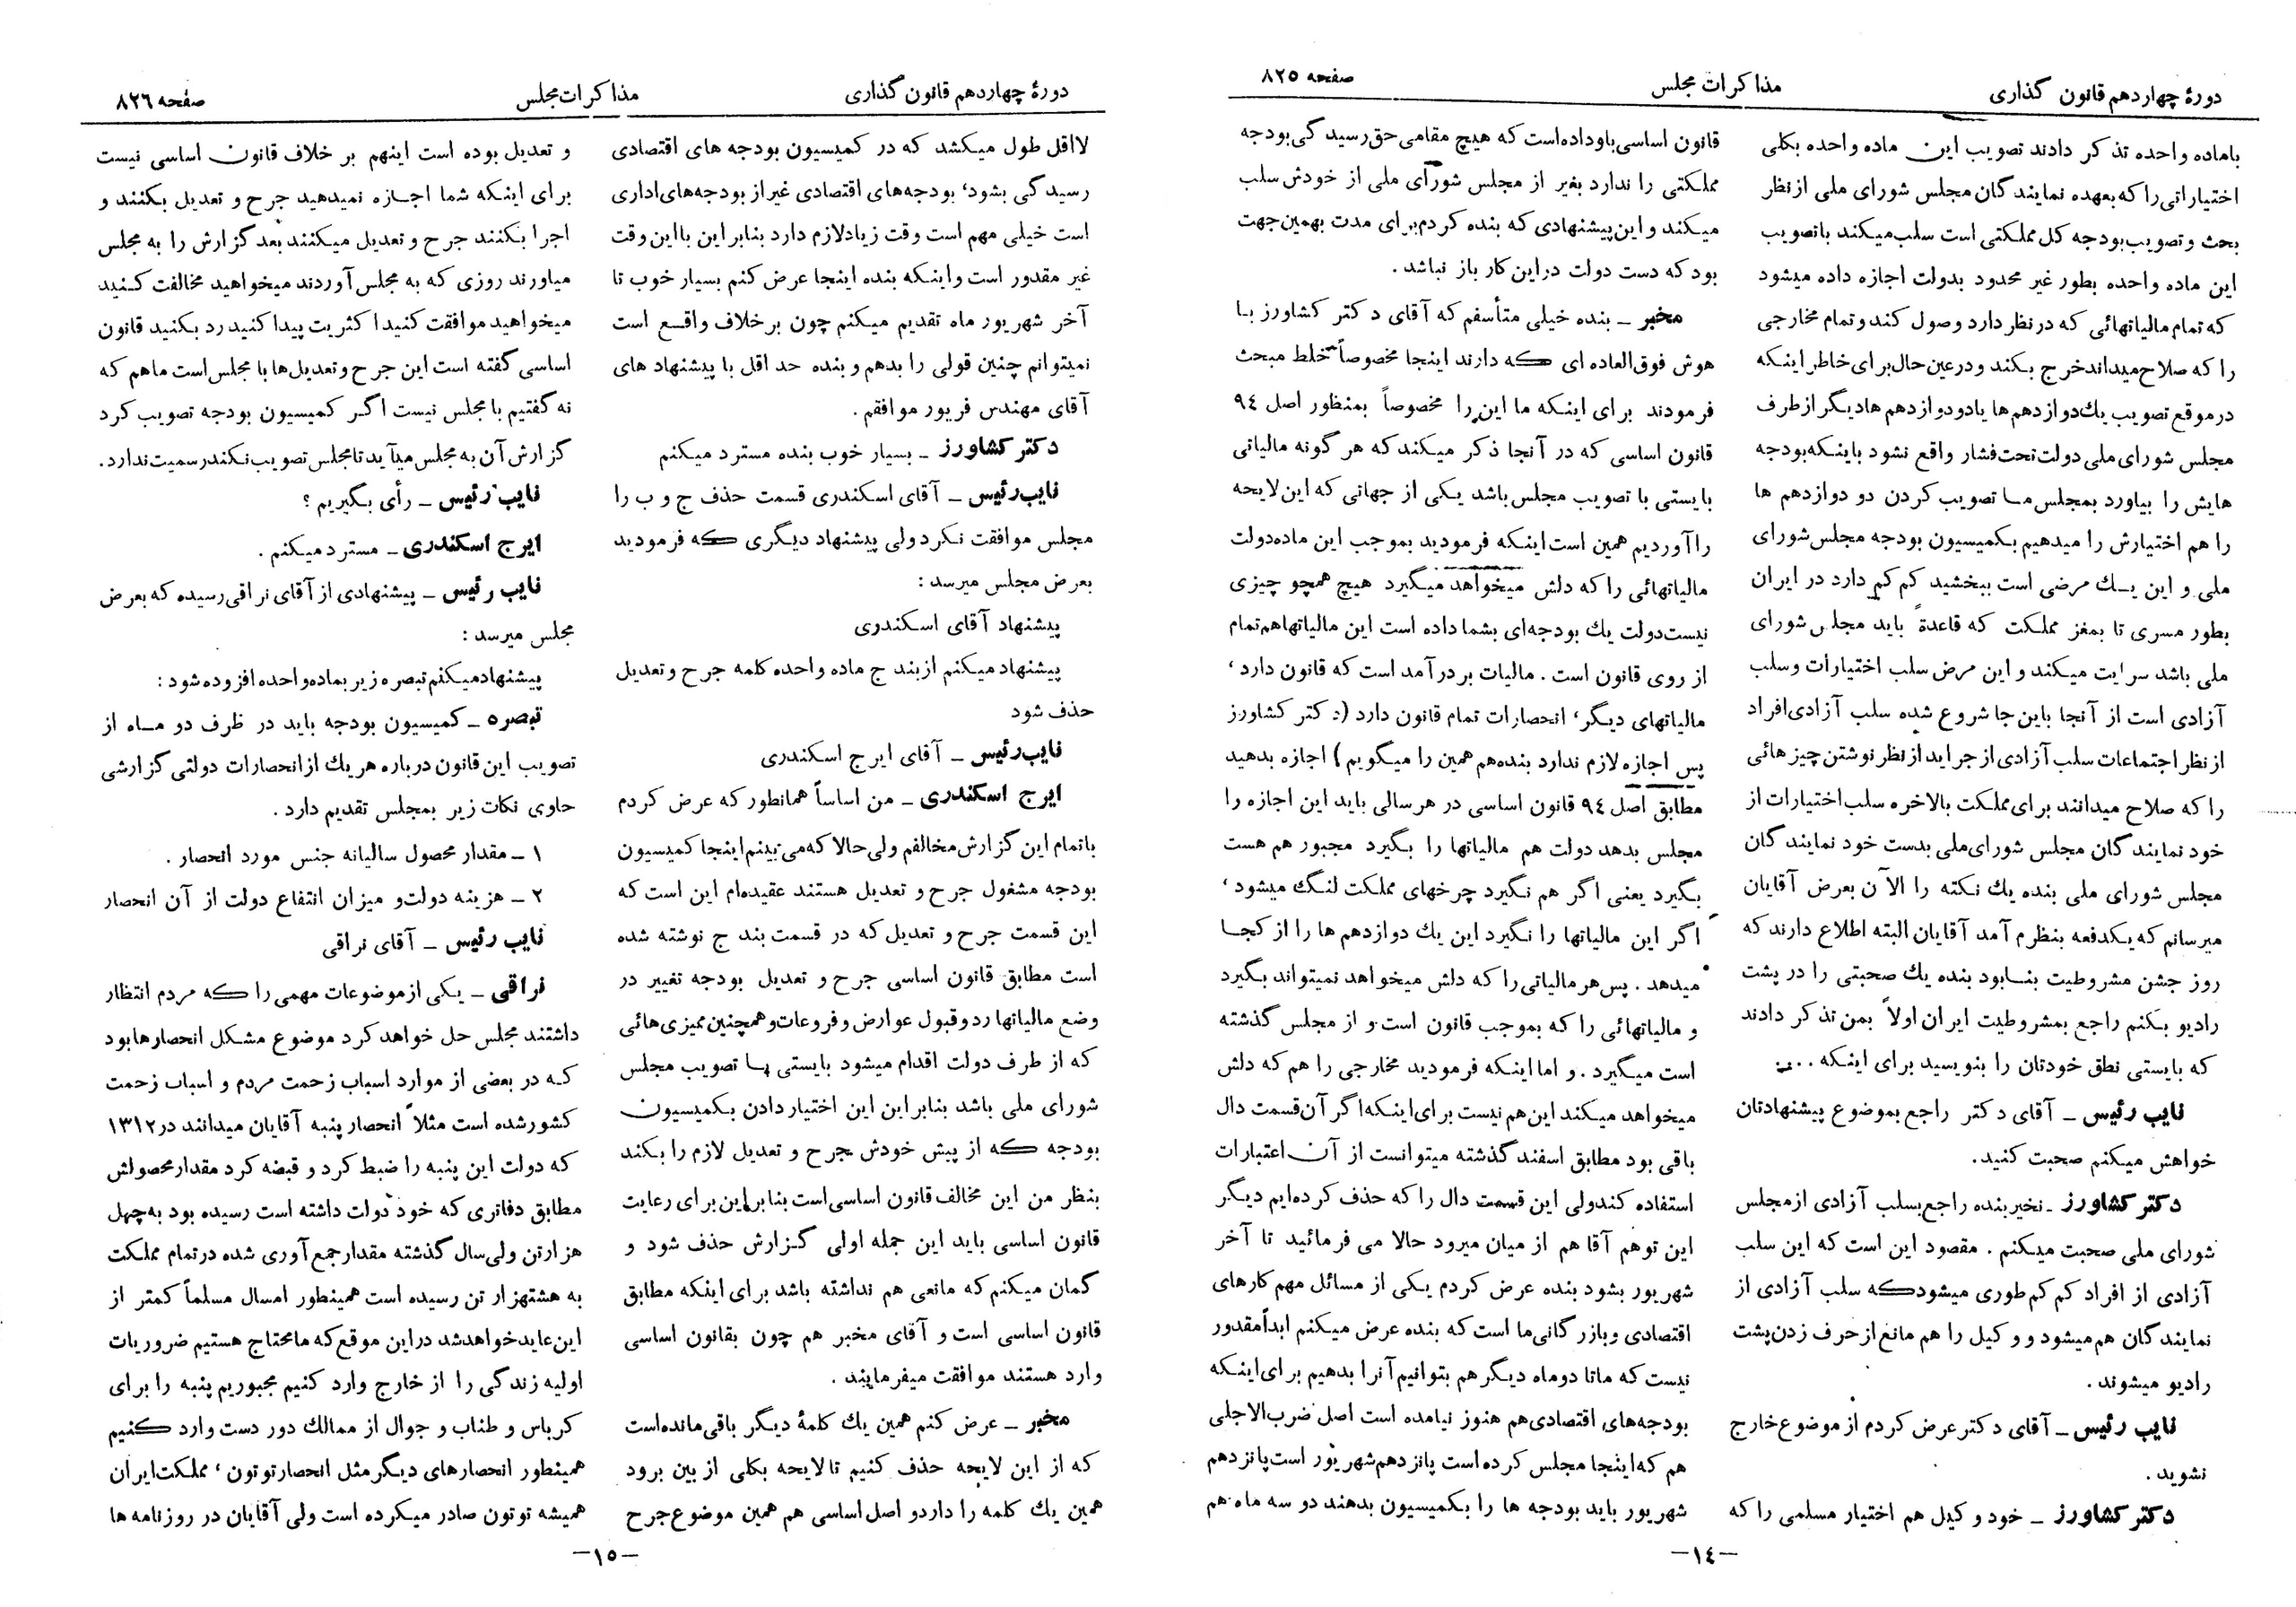 دورهٔ چهاردهم قانون گذاری
مذاکرات مجلس
صفحه ۸۲۵
باماده واحده تذکر دادند تصویب این ماده واحده بکلی
اختیاراتی را که بعهده نمایندگان مجلس شورای ملی از نظر
بحث و تصویب بودجه کل مملکتی است سلب میکند با تصویب
این ماده واحده بطور غیر محدود بدولت اجازه داده میشود
که تمام مالیاتهائی که در نظر دارد وصول کند و تمام مخارجی
را که صلاح میداند خرج بکند و در عین حال برای خاطر اینکه
در موقع تصویب یك دوازدهم ها یا دو دوازدهم ها دیگر از طرف
مجلس شورای ملی دولت تحت فشار واقع نشود باینکه بودجه
هایش را بیاورد بمجلس ما تصویب کردن دو دوازدهم ها
را هم اختیارش را میدهیم بکمیسیون بودجه مجلس شورای
ملی و این یك مرضی است ببخشید کم کم دارد در ایران
بطور مسری تا بمغز مملکت که قاعدةً باید مجلس شورای
ملی باشد سرایت میکند و این مرض سلب اختیارات و سلب
آزادی است از آنجا باین جا شروع شده سلب آزادی افراد
از نظر اجتماعات سلب آزادی از جراید از نظر نوشتن چیز هائی
را که صلاح میدانند برای مملکت بالاخره سلب اختیارات از
خود نمایندگان مجلس شورای ملی بدست خود نمایندگان
مجلس شورای ملی بنده یك نکته را الآن بعرض آقایان
میرسانم که یکدفعه بنظرم آمد آقایان البته اطلاع دارند که
روز جشن مشروطیت بنا بود بنده یك صحبتی را در پشت
رادیو بکنم راجع بمشروطیت ایران اولاً بمن تذکر دادند
که بایستی نطق خودتان را بنویسید برای اینکه ....
نایب رئیس ــ آقای دکتر راجع بموضوع پیشنهادتان
خواهش میکنم صحبت کنید.
دکتر کشاورز ــ نخیر بنده راجع بسلب آزادی از مجلس
شورای ملی صحبت میکنم . مقصود این است که این سلب
آزادی از افراد کم کم طوری میشود که سلب آزادی از
نمایندگان هم میشود و وکیل را هم مانع از حرف زدن پشت
رادیو میشوند .
نایب رئیس ــ آقای دکتر عرض کردم از موضوع خارج
نشوید .
دکتر کشاورز ــ خود وکیل هم اختیار مسلمی را که
قانون اساسی باو داده است که هیچ مقامی حق رسیدگی بودجه
مملکتی را ندارد بغیر از مجلس شورای ملی از خودش سلب
میکند و این پیشنهادی که بنده کردم برای مدت بهمین جهت
بود که دست دولت در این کار باز نباشد .
مخبر ــ بنده خیلی متأسفم که آقای دکتر کشاورز با
هوش فوق العاده ای که دارند اینجا مخصوصاً خلط مبحث
فرمودند برای اینکه ما این را مخصوصاً بمنظور اصل ۹٤
قانون اساسی که در آنجا ذکر میکند که هر گونه مالیاتی
بایستی با تصویب مجلس باشد یکی از جهاتی که این لایحه
را آوردیم همین است اینکه فرمودید بموجب این ماده دولت
مالیاتهائی را که دلش میخواهد میگیرد هیچ همچو چیزی
نیست دولت یك بودجه‌ای بشما داده است این مالیاتها هم تمام
از روی قانون است . مالیات بر درآمد است که قانون دارد ،
مالیاتهای دیگر ، انحصارات تمام قانون دارد (دکتر کشاورز
پس اجازه لازم ندارد بنده هم همین را میگویم) اجازه بدهید
مطابق اصل ۹٤ قانون اساسی در هر سالی باید این اجازه را
مجلس بدهد دولت هم مالیاتها را بگیرد مجبور هم هست
بگیرد یعنی اگر هم نگیرد چرخهای مملکت لنگ میشود ،
اگر این مالیاتها را نگیرد این یك دوازدهم ها را از کجا
میدهد . پس هر مالیاتی را که دلش میخواهد نمیتواند بگیرد
و مالیاتهائی را که بموجب قانون است و از مجلس گذشته
است میگیرد . و اما اینکه فرمودید مخارجی را هم که دلش
میخواهد میکند این هم نیست برای اینکه اگر آن قسمت دال
باقی بود مطابق اسفند گذشته میتوانست از آن اعتبارات
استفاده کند ولی این قسمت دال را که حذف کرده‌ایم دیگر
این توهم آقا هم از میان میرود حالا می فرمائید تا آخر
شهریور بشود بنده عرض کردم یکی از مسائل مهم کارهای
اقتصادی و بازرگانی ما است که بنده عرض میکنم ابداً مقدور
نیست که ما تا دو ماه دیگر هم بتوانیم آنرا بدهیم برای اینکه
بودجه‌های اقتصادی هم هنوز نیامده است اصل ضرب الاجلی
هم که اینجا مجلس کرده است پانزدهم شهریور است پانزدهم
شهریور باید بودجه ها را بکمیسیون بدهند دو سه ماه هم
ــ۱٤ــ
دورهٔ چهاردهم قانون گذاری
مذاکرات مجلس
صفحه ۸۲٦
لااقل طول میکشد که در کمیسیون بودجه های اقتصادی
رسیدگی بشود، بودجه‌های اقتصادی غیر از بودجه‌های اداری
است خیلی مهم است وقت زیاد لازم دارد بنابر این با این وقت
غیر مقدور است و اینکه بنده اینجا عرض کنم بسیار خوب تا
آخر شهریور ماه تقدیم میکنم چون برخلاف واقع است
نمیتوانم چنین قولی را بدهم و بنده حد اقل با پیشنهاد های
آقای مهندس فریور موافقم .
دکتر کشاورز ــ بسیار خوب بنده مسترد میکنم
نایب رئیس ــ آقای اسکندری قسمت حذف ج و ب را
مجلس موافقت نکرد ولی پیشنهاد دیگری که فرمودید
بعرض مجلس میرسد :
پیشنهاد آقای اسکندری
پیشنهاد میکنم از بند ج ماده واحده کلمه جرح و تعدیل
حذف شود
نایب رئیس ــ آقای ایرج اسکندری
ایرج اسکندری ــ من اساساً همانطور که عرض کردم
با تمام این گزارش مخالفم ولی حالا که می بینم اینجا کمیسیون
بودجه مشغول جرح و تعدیل هستند عقیده‌ام این است که
این قسمت جرح و تعدیل که در قسمت بند ج نوشته شده
است مطابق قانون اساسی جرح و تعدیل بودجه تغییر در
وضع مالیاتها رد و قبول عوارض و فروعات و همچنین ممیزی هائی
که از طرف دولت اقدام میشود بایستی با تصویب مجلس
شورای ملی باشد بنابر این این اختیار دادن بکمیسیون
بودجه که از پیش خودش جرح و تعدیل لازم را بکند
بنظر من این مخالف قانون اساسی است بنابر این برای رعایت
قانون اساسی باید این جمله اولی گزارش حذف شود و
گمان میکنم که مانعی هم نداشته باشد برای اینکه مطابق
قانون اساسی است و آقای مخبر هم چون بقانون اساسی
وارد هستند موافقت میفرمایند .
مخبر ــ عرض کنم همین یك کلمهٔ دیگر باقی مانده است
که از این لایحه حذف کنیم تا لایحه بکلی از بین برود
همین یك کلمه را دارد و اصل اساسی هم همین موضوع جرح
و تعدیل بوده است اینهم بر خلاف قانون اساسی نیست
برای اینکه شما اجازه نمیدهید جرح و تعدیل بکنند و
اجرا بکنند جرح و تعدیل میکنند بعد گزارش را به مجلس
میاورند روزی که به مجلس آوردند میخواهید مخالفت کنید
میخواهید موافقت کنید اکثریت پیدا کنید رد بکنید قانون
اساسی گفته است این جرح و تعدیل ها با مجلس است ما هم که
نه گفتیم با مجلس نیست اگر کمیسیون بودجه تصویب کرد
گزارش آن به مجلس میآید تا مجلس تصویب نکند رسمیت ندارد.
نایب رئیس ــ رأی بگیریم ؟
ایرج اسکندری ــ مسترد میکنم .
نایب رئیس ــ پیشنهادی از آقای نراقی رسیده که بعرض
مجلس میرسد :
پیشنهاد میکنم تبصره زیر بماده واحده افزوده شود :
تبصره ــ کمیسیون بودجه باید در ظرف دو ماه از
تصویب این قانون درباره هر یك از انحصارات دولتی گزارشی
حاوی نکات زیر بمجلس تقدیم دارد .
۱ ــ مقدار محصول سالیانه جنس مورد انحصار .
۲ ــ هزینه دولت و میزان انتفاع دولت از آن انحصار
نایب رئیس ــ آقای نراقی
نراقی ــ یکی از موضوعات مهمی را که مردم انتظار
داشتند مجلس حل خواهد کرد موضوع مشکل انحصارها بود
که در بعضی از موارد اسباب زحمت مردم و اسباب زحمت
کشور شده است مثلاً انحصار پنبه آقایان میدانند در ۱۳۱۲
که دولت این پنبه را ضبط کرد و قبضه کرد مقدار محصولش
مطابق دفاتری که خود دولت داشته است رسیده بود به چهل
هزار تن ولی سال گذشته مقدار جمع آوری شده در تمام مملکت
به هشتهزار تن رسیده است همینطور امسال مسلماً کمتر از
این عاید خواهد شد در این موقع که ما محتاج هستیم ضروریات
اولیه زندگی را از خارج وارد کنیم مجبوریم پنبه را برای
کرباس و طناب و جوال از ممالك دور دست وارد کنیم
همینطور انحصارهای دیگر مثل انحصار توتون ، مملکت ایران
همیشه توتون صادر میکرده است ولی آقایان در روزنامه ها
ــ۱٥ــ